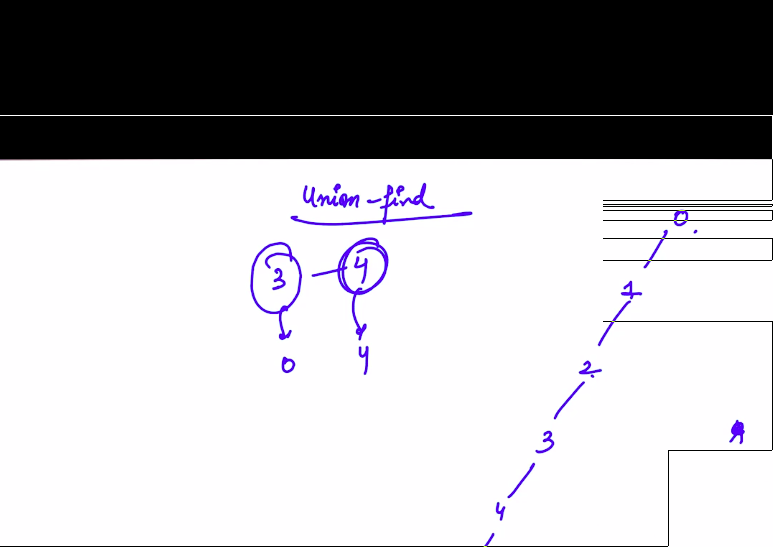 Union-find
3 - 4
0 4
0
1
2
3
4